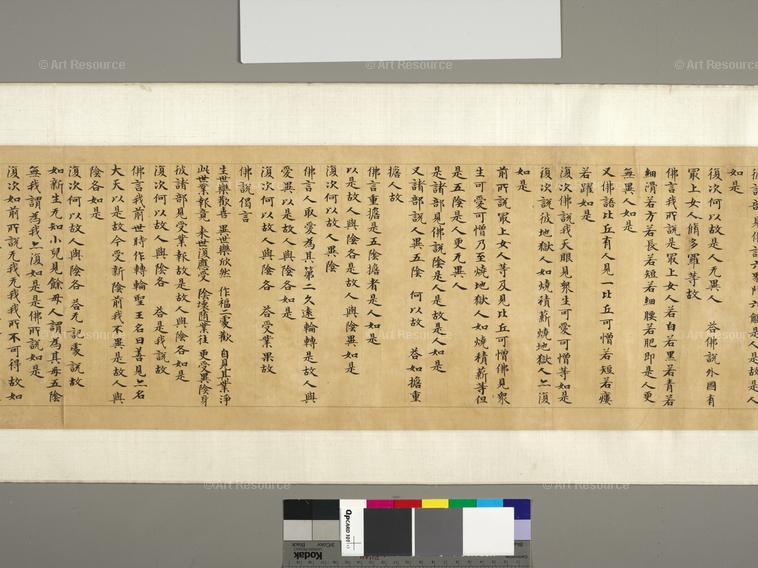 彼諸部見佛言六觸門六觸是人是故是人
如是
復次何以故是人无異人 答佛說外國有
冣上女人脩多羅等故
佛言我所說是冣上女人若白若黑若青若
細滑若方若長若短若細腰若肥即是人更
無異人如是
又佛語比丘有人見一比丘可憎若短若瘻
若躍如是
復次佛說我天眼見衆生可愛可憎等如是
復次說彼地獄人如燒積薪燒地獄人亦復
如是
前所說冣上女人等及見比丘可憎佛見衆
生可愛可憎乃至燒地獄人如燒積薪等但
是五陰是人更无異人
是諸部見佛說陰是人是故是人如是
又諸部說人異五陰 何以故 答如擔重
擔人故
佛言重擔是五陰擔者是人如是
以是故人與陰各是故人與陰異如是
復次何以故人與異陰
佛言人取愛為其第二久遠輪轉是故人與
愛異以是故人與陰各如是
復次何以故人與陰各 答受業果故
佛說偈言
生世樂歡喜 異世樂欣然 作福二處歡 自見其業淨
此世業報竟 來世復應受 陰壞隨業往 更受異陰身
彼諸部見受業報故是故人與陰各如是
復次何以故人與陰各 答是我說故
佛言我前世時作轉輪聖王名曰善見亦名
大天以是故今受新陰前我不異是故人與
陰各如是
復次何以故人與陰各 答无記處說故
如新生无知小兒見餘母人謂為其母五陰
無我謂為我亦復如是是佛所說如是
復次如前所說无我无我我所不可得故如
© Art Resource
© Art Resource
© Art Resource
© Art Resource
© Art Resource
© Art Resource
QPCARD 101
Kodak
Black
3/Color